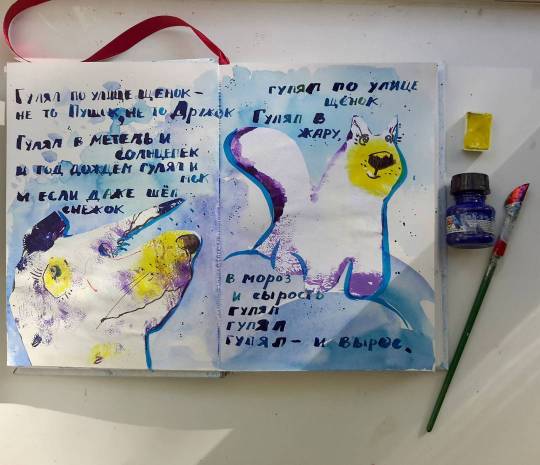 Гулял по улице щенок –
не то Пушок, не то Дружок
Гулял в метель и
солнцепек
и под дождем гулял и
мок
и если даже шёл
снежок
гулял по улице
щенок
Гулял в
жару,
в мороз
и сырость
гулял
гулял
гулял – и вырос.